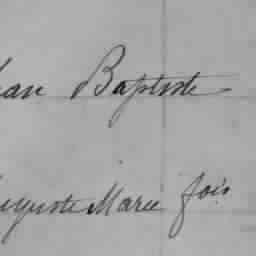 ean Baptiste
uguste Marie fois